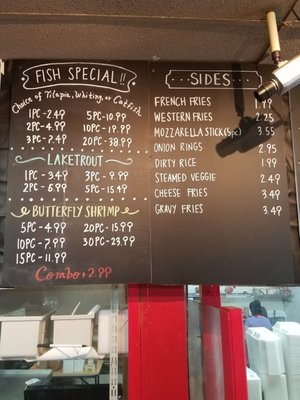 FISH SPECIAL!!
Choice of Tilapia, Whiting, or Catfish
1PC - 2.49 5PC - 10.99
2PC - 4.99 10PC - 19.99
3PC - 7.49 20PC - 38.99
LAKETROUT
1PC - 3.49 3PC - 9.99
2PC - 6.99 5PC - 15.49
BUTTERFLY SHRIMP
5PC - 4.99 20PC - 15.99
10PC - 7.99 30PC - 23.99
15PC - 11.99
Combo + 2.99
SIDES
FRENCH FRIES 1.99
WESTERN FRIES 2.25
MOZZARELLA STICK(5pc) 3.55
ONION RINGS 2.95
DIRTY RICE 1.99
STEAMED VEGGIE 2.49
CHEESE FRIES 3.49
GRAVY FRIES 3.49